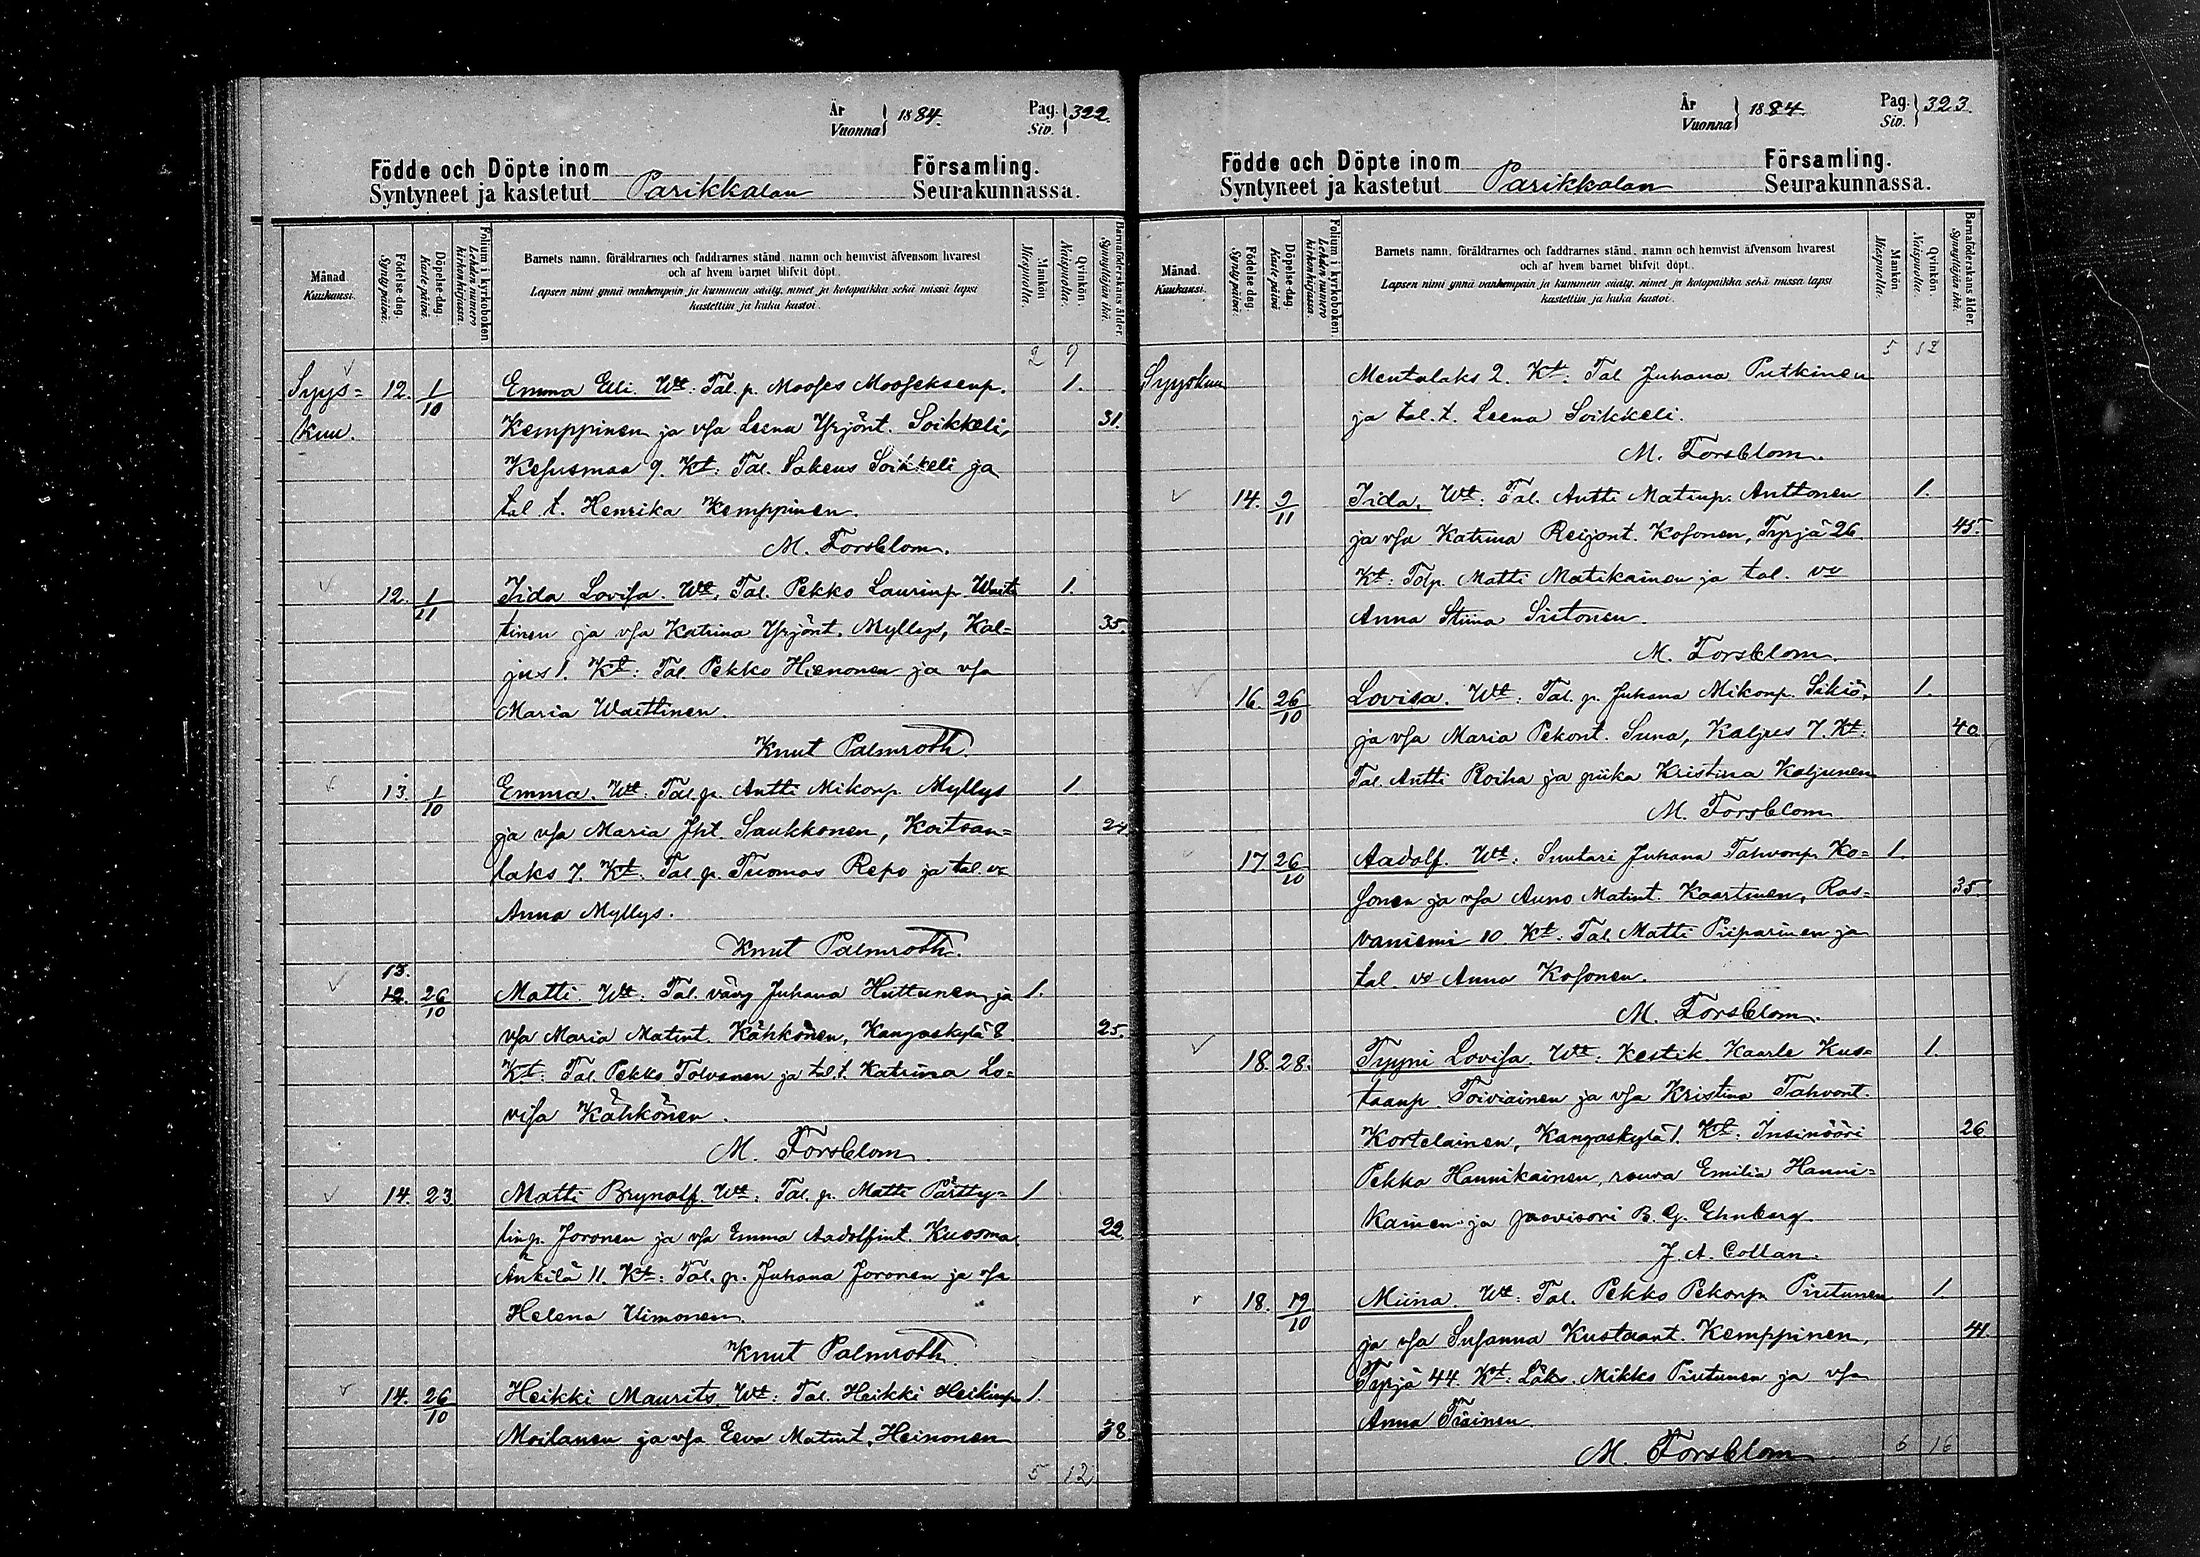 År
Vuonna } 1884.
Pag.
Siv. } 322.
Födde och Döpte inom Församling.
Syntyneet ja kastetut Parikkalan Seurakunnassa.
Månad.
Kuukausi.
Födelse-dag.
Synty päivä.
Döpelse-dag.
Kaste päivä.
Folium i kyrkoboken
Lehden numero kirkonkirjassa.
Barnets namn, föräldrarnes och faddrarnes stånd, namn och hemvist äfvensom hvarest
och af hvem barnet blifvit döpt.
Lapsen nimi ynnä vanhempain ja kummein sääty, nimet ja kotopaikka sekä missä lapsi
kastettiin ja kuka kastoi.
Mankön
Miespuolia.
Qvinkön.
Naispuolia.
Barnaföderskans ålder.
Synnyttäjän ikä.
2 9
Syys= 12. 1/10 Emma Elli. Wt. Tal. p. Mooses Mooseksenp. 1.
kuu. Kemppinen ja vsa Leena Yrjönt. Soikkeli, 31.
Kesusmaa 9. Kt: Tal. Sakeus Soikkeli ja
tal. t. Henrika Kemppinen.
M. Forsblom.
12. 1/11 Iida Lovisa. Wt. Tal. Pekko Laurinp. Wait 1.
tinen ja vsa Katrina Yrjönt. Myllys, Kal= 35.
jus 1. Kt: Tal. Pekko Hienonen ja vsa
Maria Waittinen.
Knut Palmroth.
13. 1/10 Emma. Wt: Tal. p. Antti Mikonp. Myllys 1.
ja vsa Maria Jht. Saukkonen, Koitsan= 24
laks 7. Kt. Tal. p. Tuomas Repo ja tal. v.
Anna Myllys.
Knut Palmroth.
13.
12. 26/10 Matti. Wt. Tal. vävy Juhana Huttunen ja 1.
vsa Maria Matint. Kähkönen, Kangaskylä 8 25.
Kt: Tal. Pekko Tolvanen ja tal. t. Katrina Lo=
visa Kähkönen.
M. Forsblom
14. 23. Matti Brynolf. Wt: Tal. p. Matti Pärtty= 1
linp. Joronen ja vsa Emma Aadolfint. Kuosma. 22.
Änkilä 11. Kt: Tal. p. Juhana Joronen ja vsa
Helena Uimonen.
Knut Palmroth.
14. 26/10 Heikki Maurits. Wt: Tal. Heikki Heikinp. 1.
Moilanen ja vsa Eeva Matint. Heinonen 38.
5 12
År
Vuonna } 1884.
Pag.
Siv. } 323.
Födde och Döpte inom Församling.
Syntyneet ja kastetut Parikkalan Seurakunnassa.
Månad.
Kuukausi.
Födelse-dag.
Synty päivä.
Döpelse-dag.
Kaste päivä.
Folium i kyrkoboken
Lehden numero kirkonkirjassa.
Barnets namn, föräldrarnes och faddrarnes stånd, namn och hemvist äfvensom hvarest
och af hvem barnet blifvit döpt.
Lapsen nimi ynnä vanhempain ja kummein sääty, nimet ja kotopaikka sekä missä lapsi
kastettiin ja kuka kastoi.
Mankön
Miespuolia.
Qvinkön.
Naispuolia.
Barnaföderskans ålder.
Synnyttäjän ikä.
5 12
Syyskuu Mentalaks 2. Kt: Tal Juhana Putkinen
ja tal. t. Leena Soikkeli.
M. Forsblom.
14. 9/11 Iida. Wt: Tal. Antti Matinp. Anttonen 1.
ja vsa Katrina Reijont. Kosonen, Tyrjä 26 45.
Kt: Tolp. Matti Matikainen ja tal. vv
Anna Stiina Sistonen.
M. Forsblom.
16. 26/10 Lovisa. Wt: Tal. p. Juhana Mikonp. Sikiö, 1.
ja vsa Maria Pekont. Suna, Kaljus 7. Kt: 40
Tal. Antti Roiha ja piika Kristina Kaljunen
M. Forsblom
17. 26/10 Aadolf. Wt: Suutari Juhana Tahvonp. Ko= 1.
sonen ja vsa Anna Matint. Kaartinen, Ras= 35.
vaniemi 10. Kt: Tal. Matti Piiparinen ja
tal. vo Anna Kosonen.
M. Forsblom.
18. 28. Tyyni Lovisa. Wt: Kestik. Kaarle Kus= 1.
taanp. Toiviainen ja vsa Kristina Tahvont.
Kortelainen, Kangaskylä 1. Kt: Insinööri 26
Pekka Hannikainen, rouva Emilia Hanni=
kainen ja provisori B. G. Ehnberg.
J. A. Collan.
18. 19/10 Miina. Wt: Tal. Pekko Pekonp. Pirtunen 1.
ja vsa Susanna Kustaant. Kemppinen, 41.
Tyrjä 44. Kt: Läks. Mikko Pirtunen ja vsa
Anna Tiainen
M. Forsblom
6 16